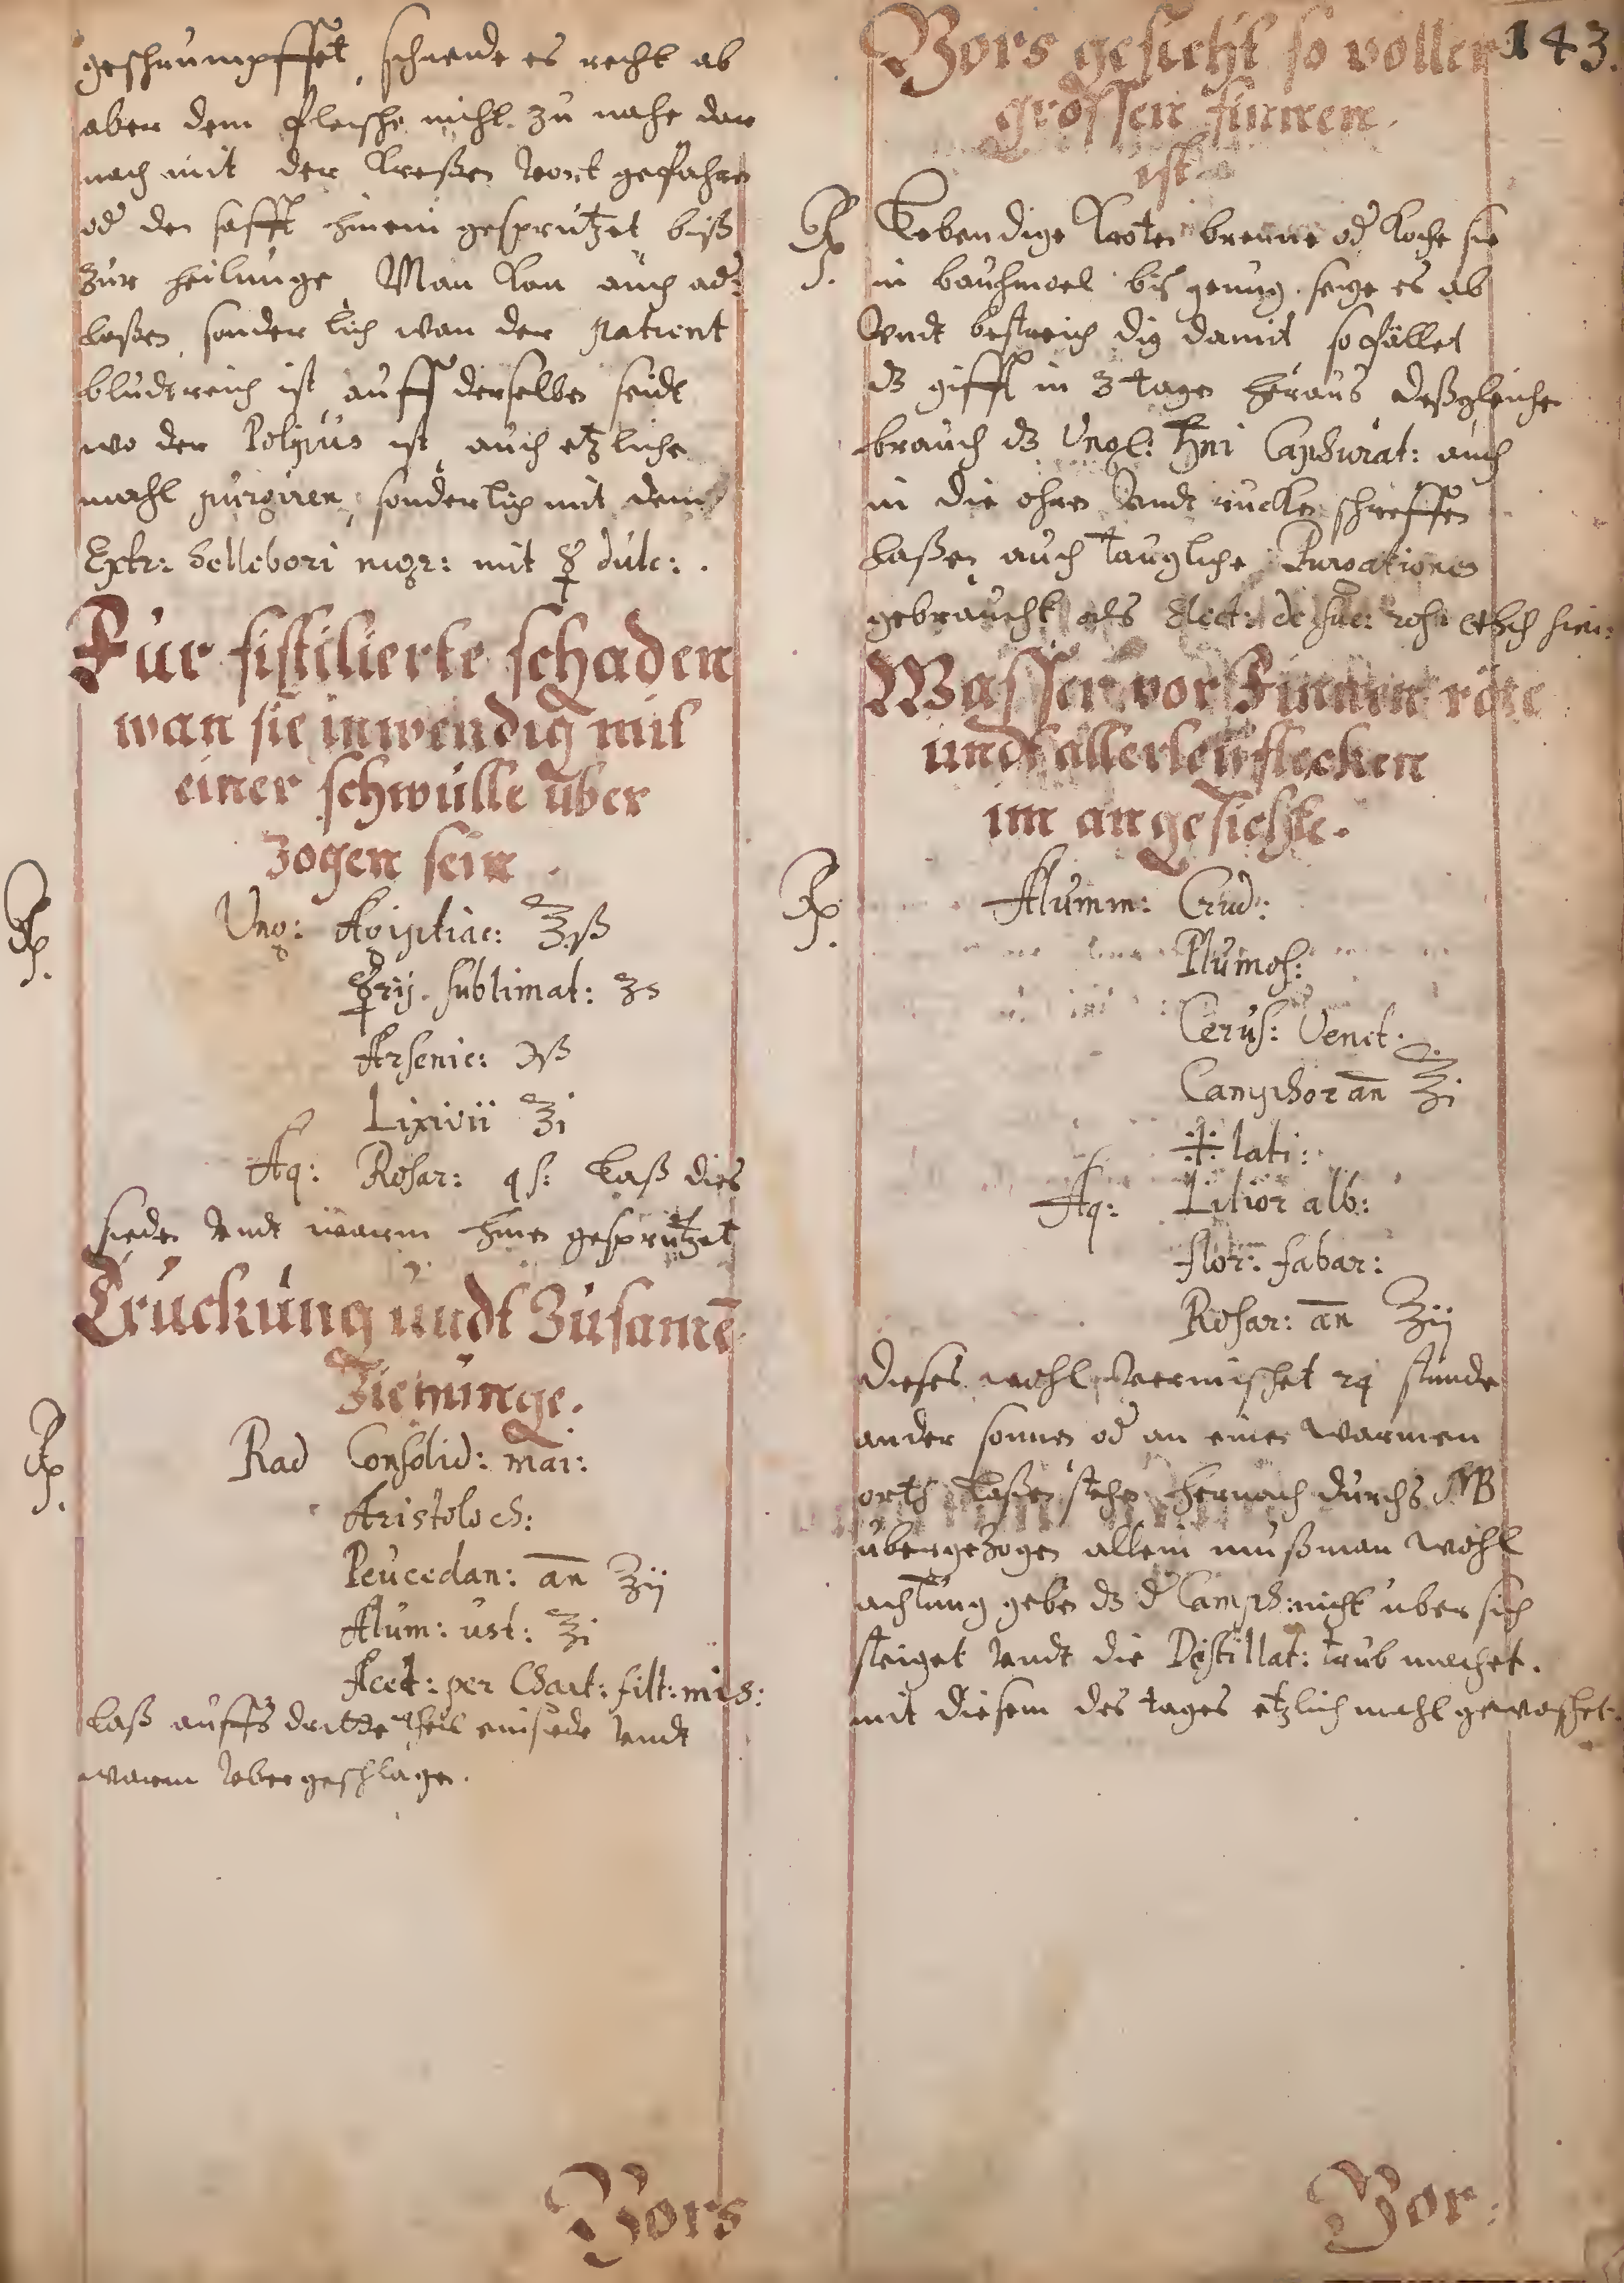 geschrumpffet, schneide es recht ab
aber dem fleische nicht zu nahe dar
nach mit der kreßen wort gefahren
od den safft hinein gesprützet biß
zur heilunge Man kan auch ad:
laßen, sonderlich wan der patient
bludtreich ist auff derselben seidt
wo der Polypus ist, auch etzliche
mahl purgiren, sonderlich mit dem
Extr: hellebori nigr: mit ☿ dulc: .
Fur fistilierte schaden
wan sie inwendig mit
einer schwulle uber
zogen sein .
℞. Ung: Ægiptiac: ℥iß
☿rij. sublimat: ʒs
Arsenic: ℈ß
Lixivii ℥i
Aq: Rosar: qs: Laß dies
sieden undt warm hinen gesprützet
Truckung undt Zusamē
Ziehunge.
℞. Rad Consolid: mai:
Aristoloch:
Peucedan: an̄ ℥ij
Alum: ust: ℥i
Acet: per Chart: filt: mis:
Laß auffs dritte theil einsieden undt
warm ubergeschlagen.
Vors
143.
Vors gesicht so voller
grossen finnen
ist
℞. Lebendige Kroten brenne od Koche sie
in baumoel biß genug seige es ab
undt bestreich dig damit so fället
dz gifft in 3 tagen heraus deßgleichen
brauch dz Ungt: Camphurat: auch
in die ohren undt rucken schreffen
laßen auch taugliche Purgationes
gebraucht als Elect: de suc: ros:
Wasser vor Finnen röte
undt allerley flecken
im angesichte.
℞. Alumm: Crud:
Plumos:
Cerus: Venet:
Camphor an̄ ℥i
lati:
Aq: Lilior alb:
flor: fabar:
Rosar: an̄ ℥ij
dieses wohl vermischet 24 stunde
ander sonnen od an einen warmen
orth laßen stehen hernach durchs MB
übergezogen allein muß man wohl
achtung geben dz d Camph: nicht uber sich
steiget undt die Destillat: trub machet.
mit diesem des tages etzlich mahl gewaschet.
Vor: